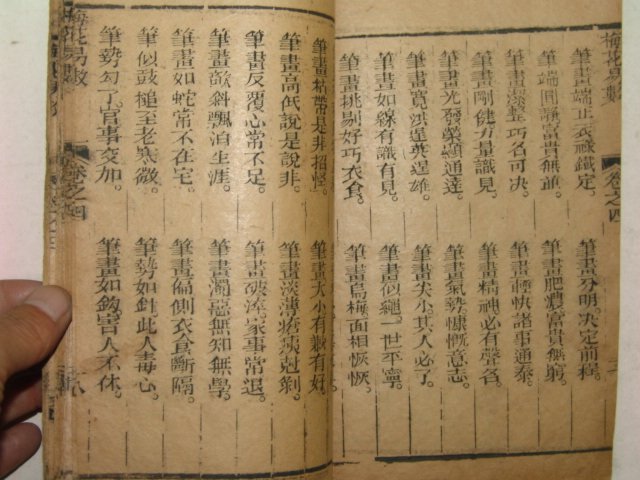 梅花易數
卷之四
筆畫端正衣祿鐵定。
筆畫分明。決定前程。
筆端圓淨富貴無雙。
筆畫肥濃富貴無窮。
筆畫潔整巧名可決。
筆畫輕快諸事通泰。
筆畫剛健力量識見。
筆畫精神必有聲名。
筆畫光發榮顯通達。
筆畫氣勢慷慨意志。
筆畫寬洪逞英逞雄。
筆畫尖小。其人必了。
筆畫如線有識有見。
筆畫似繩。一世平寧。
筆畫挑剔好巧衣食。
筆畫烏梅一面相恢恢。
筆畫精帶是非招怪。
筆畫大小有歉有好。
筆畫高低說是說非。
筆畫淡薄療痍剋剝。
筆畫反覆心常不足。
筆畫破漆。家事常退。
筆畫欹斜飄泊生涯。
筆畫濁惡無知無學。
筆畫如蛇常不在宅。
筆畫偏側衣食斷隔。
筆似鼓槌至老寒微。
筆勢如針。此人毒心。
筆勢勾了。官事交加。
筆畫如鉤。害人不休。
梅花易數
卷之四
八